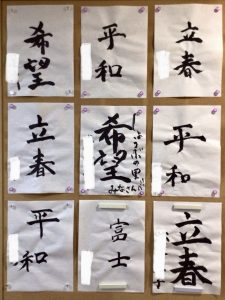 希望
平和
立春
立春
希望
しょうぶの里
みなさん
平和
平和
富士
立春